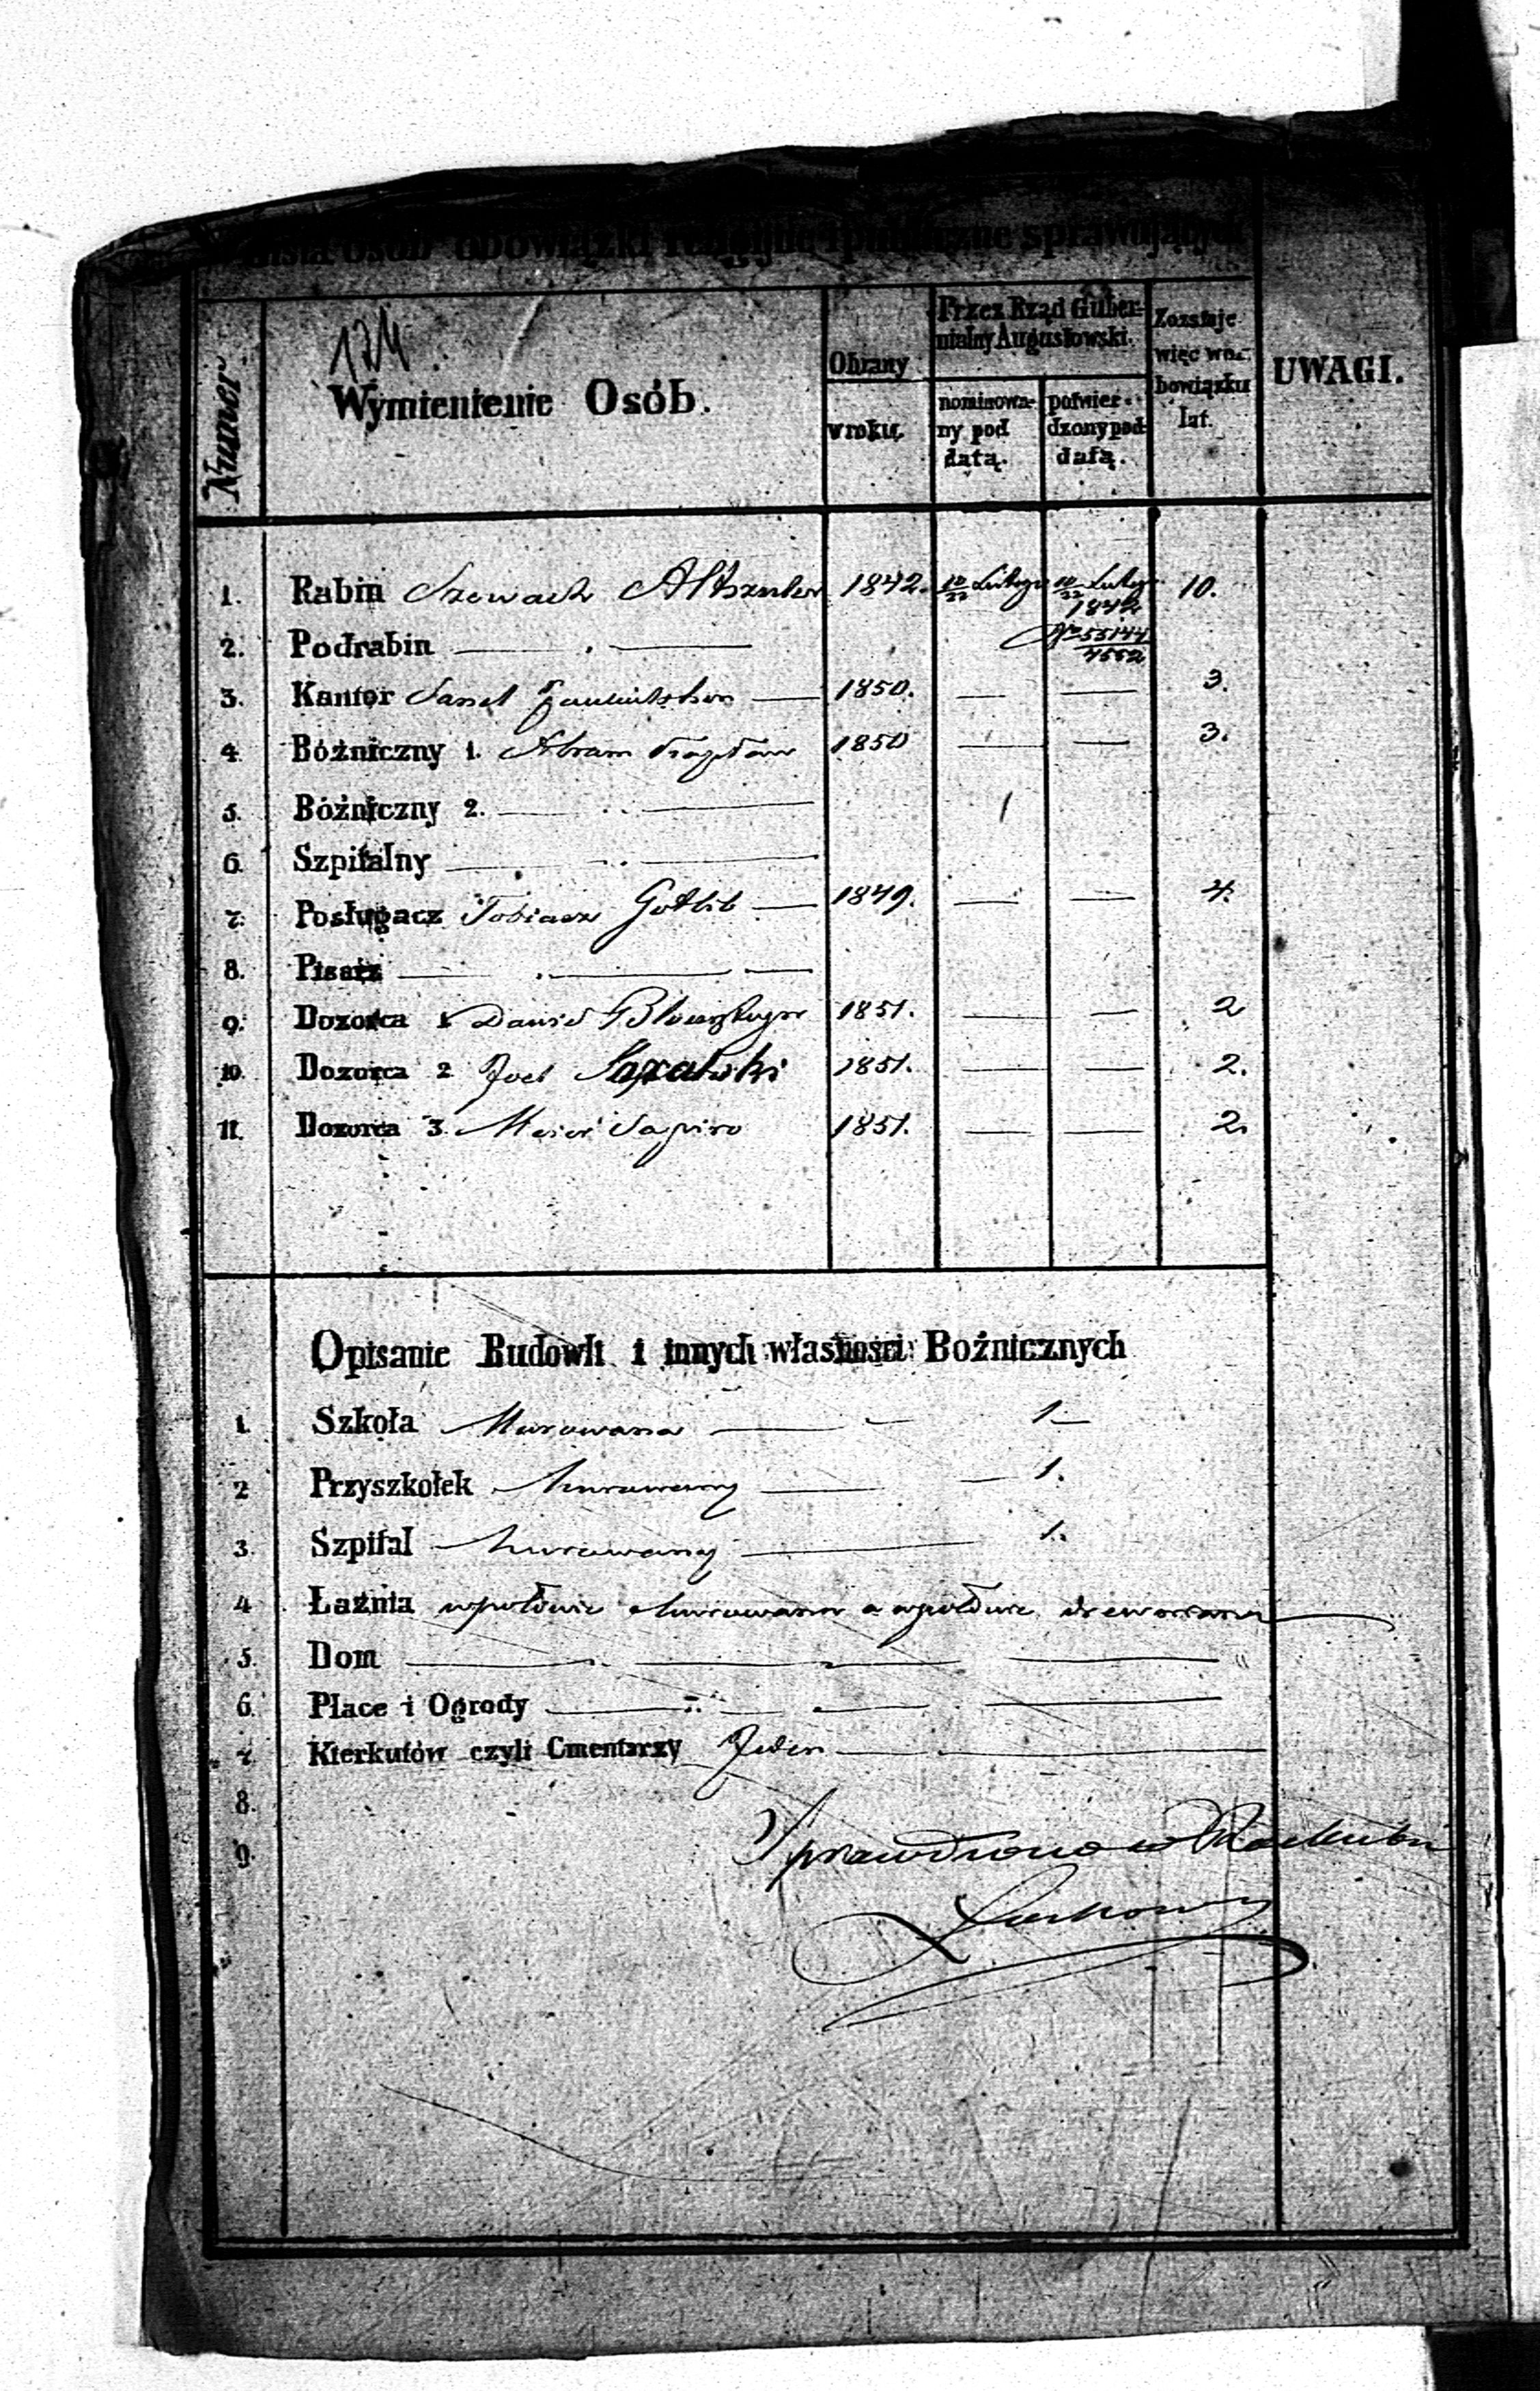 Lista osób obowiązki religijne i publiczne sprawujących
Numer
174.
Wymienienie Osób.
Obrany
w roku.
Przez Rząd Guber-
nialny Augustowski.
nominowa-
ny pod
datą.
potwier-
dzony pod
datą.
Zostaje
więc wo-
bowiązku
lat.
UWAGI.
1. Rabin Szewach Altszuler 1842. 10/22 Lutego 10/22 Lutego 10.
1842
2. Podrabin № 55144
4552
3. Kantor 1850. 3.
4. Bóźniczny 1. Abram 1850 3.
5. Bóźniczny 2.
6. Szpitalny
7. Posługacz Tobiasz Gotlib 1849. 4.
8. Pisarz
9. Dozorca 1 Dawid 1851. 2
10. Dozorca 2 Joel 1851. 2.
11. Dozorca 3. Meier Sapiro 1851. 2.
Opisanie Budowli i innych własności Bożnicznych
1. Szkoła Murowana 1
2 Przyszkołek Murowany 1.
3. Szpital Murowany 1.
4 Łaźnia wpołowie Murowana a wpołowie drewniana
5. Dom
6. Place i Ogrody
7. Kierkutów czyli Cmentarzy Jeden
8.
9.
Sprawdzono w